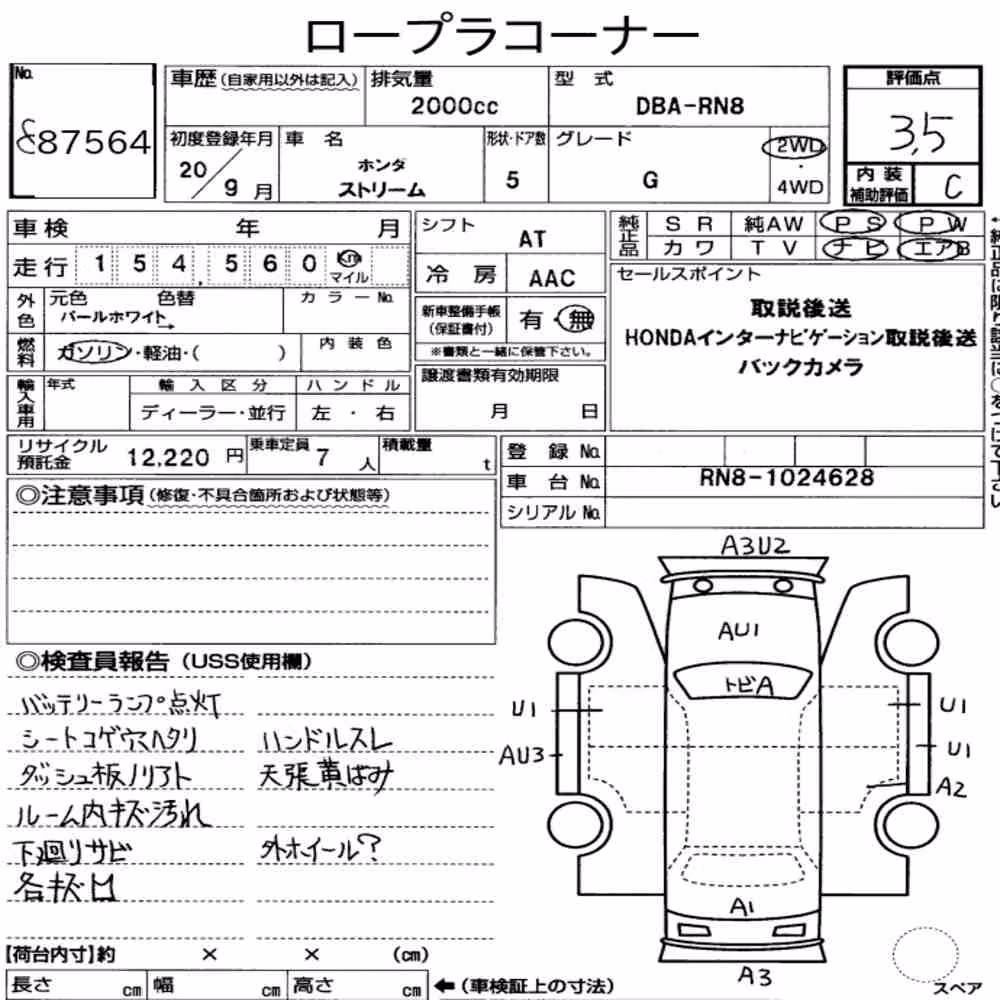 ロープラコーナー
No.
87564
車歴(自家用以外は記入)
排気量
2000cc
型 式
DBA-RN8
評価点
3,5
初度登録年月
20/9月
車 名
ホンダ
ストリーム
形状・ドア数
5
グレード
G
2WD
・
4WD
内装
補助評価
C
車検 年 月
走行 154,560 Km
マイル
外色
元色 色替
パールホワイト
カラーNo.
燃料
ガソリン・軽油・( )
内装色
輸入車用
年式
輸入区分
ディーラー・並行
ハンドル
左・右
シフト
AT
冷房
AAC
新車整備手帳
(保証書付)
有・無
※書類と一緒に保管下さい。
譲渡書類有効期限
月 日
純正品
SR 純AW PS PW
カワ TV ナビ エアB
セールスポイント
取説後送
HONDAインターナビゲーション取説後送
バックカメラ
リサイクル
預託金
12,220円
乗車定員
7人
積載量
t
登録No.
車台No.
RN8-1024628
シリアルNo.
◎注意事項(修復・不具合箇所および状態等)
◎検査員報告(USS使用欄)
バッテリーランプ点灯
シートコゲ穴ヘタリ
ハンドルスレ
ダッシュ板ノリアト
天張黄ばみ
ルーム内キズ汚れ
下廻りサビ
外ホイール?
各キズ凹
A3U2
AU1
トビA
U1
AU3
U1
U1
A2
A1
A3
【荷台内寸】約 × × (cm)
長さ cm 幅 cm 高さ cm
←(車検証上の寸法)
スペア